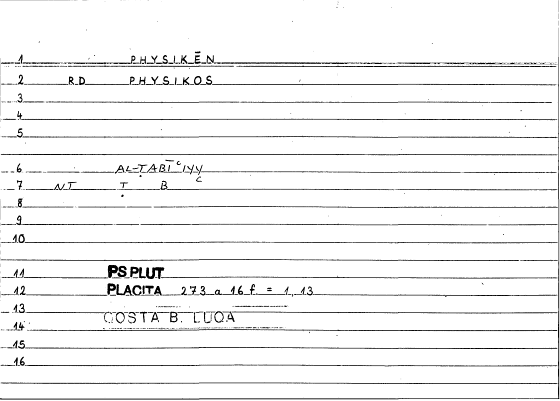 1 PHYSIKĒN
2 RD PHYSIKOS
3
4
5
6 AL-ṬABĪʿIYY
7 NT Ṭ B ʿ
8
9
10
11 PS PLUT
12 PLACITA 273 a 16 f. = 1, 13
13
14 COSTA B. LUQA
15
16